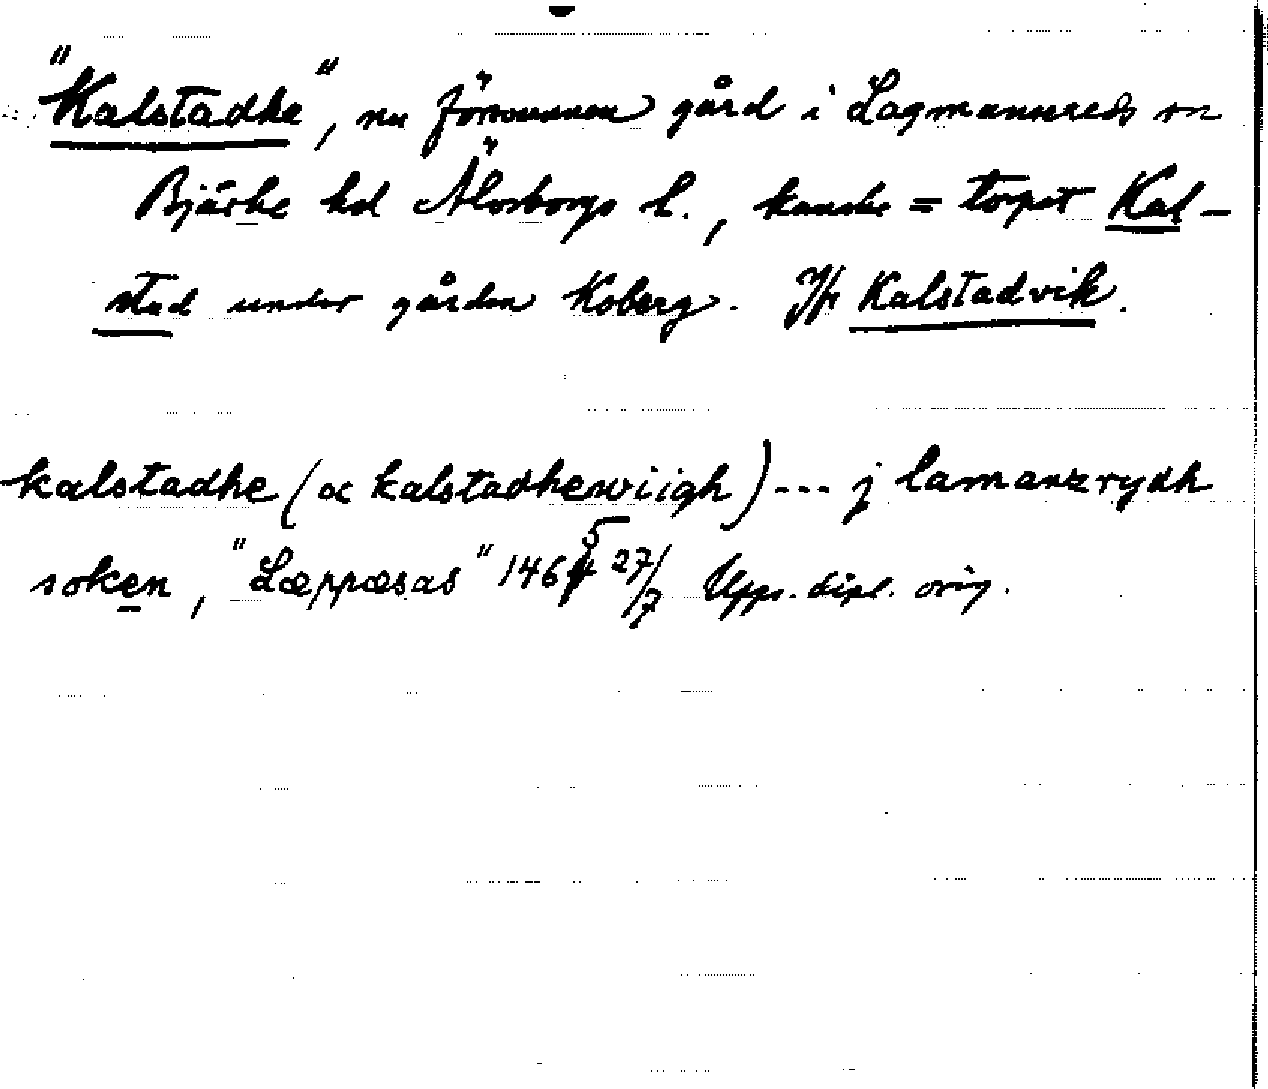 "Kalstadhe", nu försvunnen gård i Lagmansereds sn
Bjärke hd Älvsborgs l., kanske = torpet Kal-
stad under gården Koberg. Jfr Kalstadvik.
kalstadhe (oc kalstadhewiigh) --- j lamanzrydh
soken, "Læppæsas" 1465 27/7 Upps. dipl. orig.